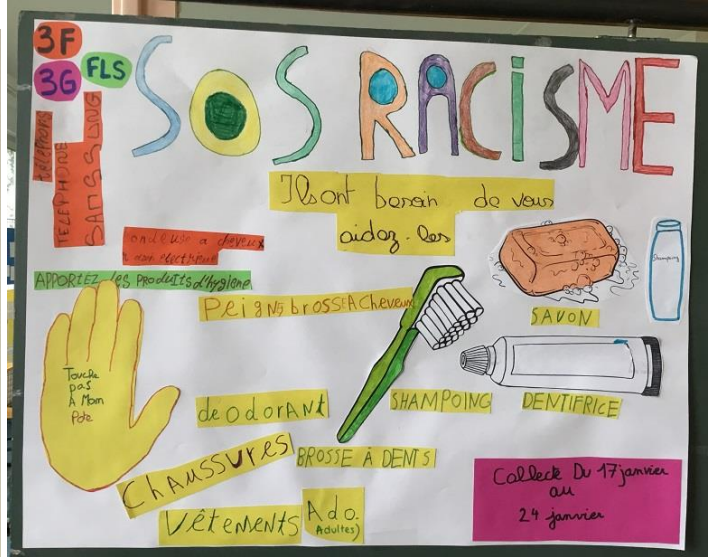 3F
3G
FLS
SOS RACISME
TELEPHONE
SAMSSUNG
Ils ont besoin de vous
aidez-les
ondeuse a cheveux
APPORTEZ les Produits d'hygiene
PeigNs brosse A Cheveux
SAVON
Shampoing
Touche
pas
A Mom
Pote
deodorANt
SHAMPOING
DENTIFRICE
BROSSE À DENTS
Chaussures
Vêtements
Ado.
Adultes)
Collecte Du 17 janvier
au
24 janvier